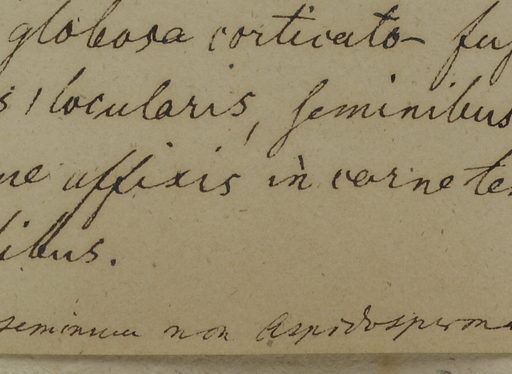 globosa corticato-
s 1 locularis, seminibus
ue affixis in carne te
ibus.
seminum non Aspidosperm